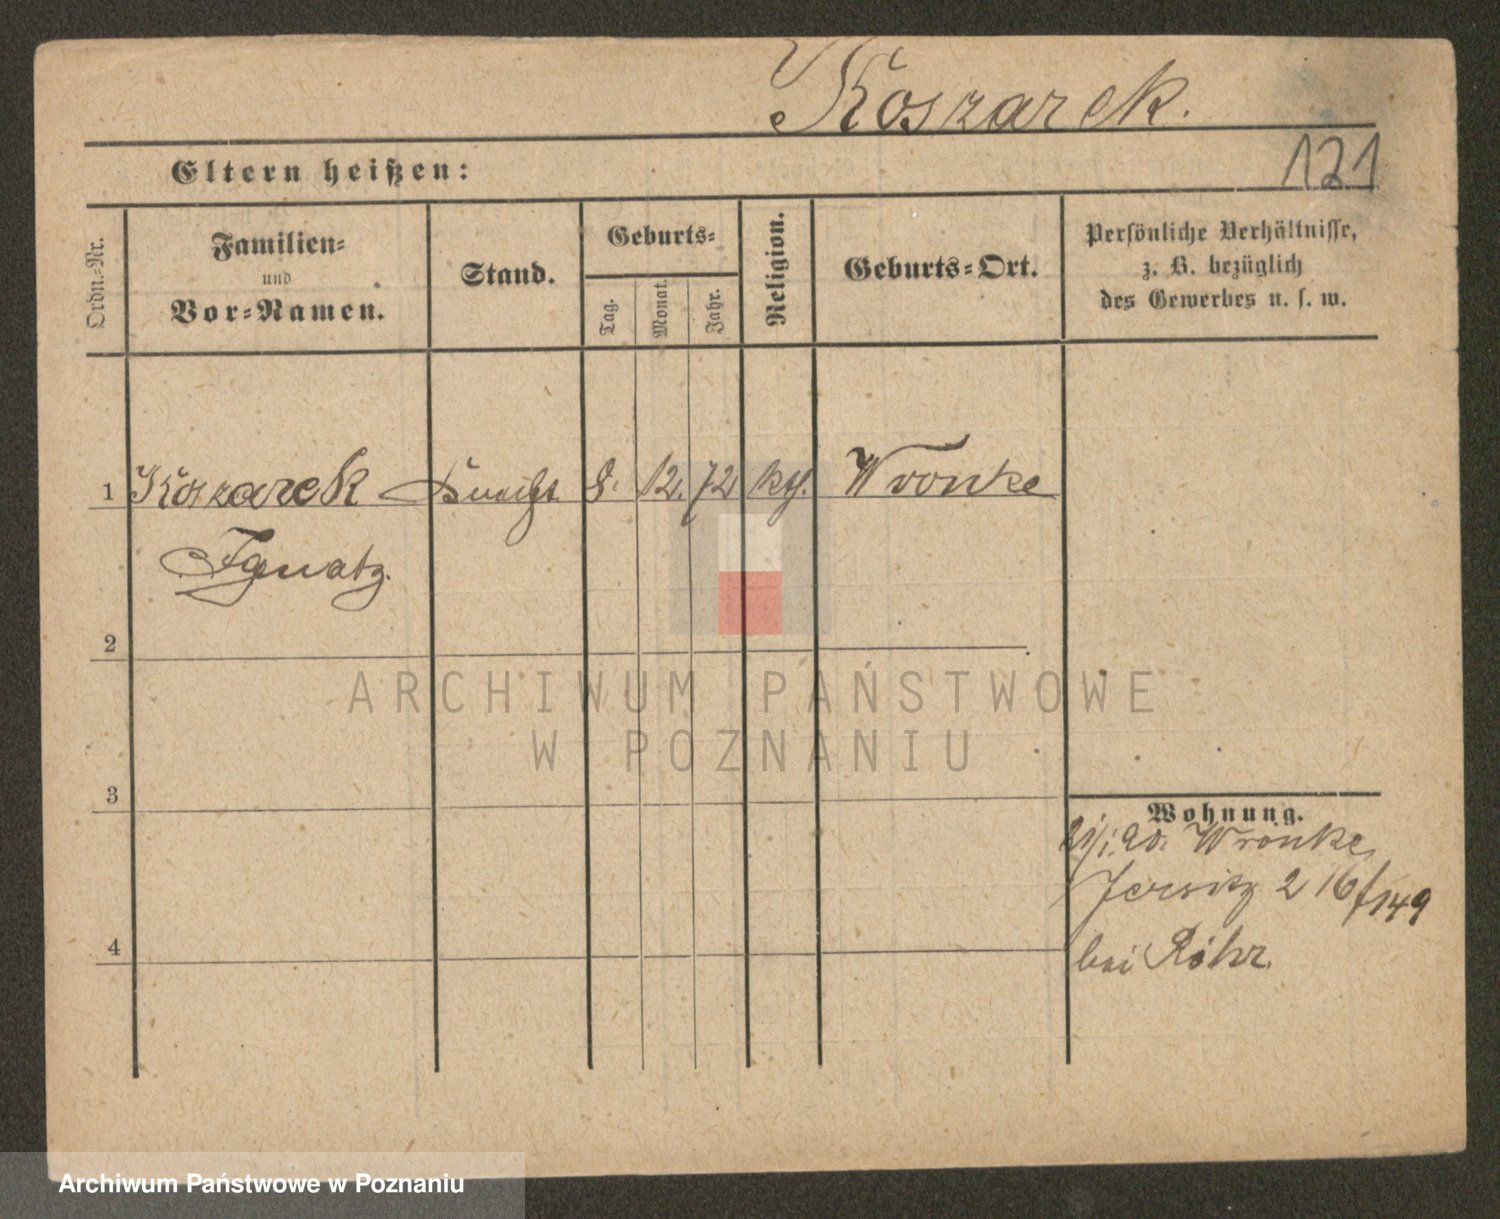 Koszarek.
121
Eltern heißen:
Ordn.-Nr.
Familien-
und
Vor-Namen.
Stand.
Geburts-
Tag.
Monat.
Jahr.
Religion.
Geburts-Ort.
Persönliche Verhältnisse,
z. B. bezüglich
des Gewerbes u. s. w.
1 Koszarek Knecht 8. 12. 72 kth. Wronke
Ignatz.
2
ARCHIWUM PAŃSTWOWE
W POZNANIU
3
Wohnung.
90. Wronke
Jersitz 2 16/149
4
bei Röhr.
Archiwum Państwowe w Poznaniu